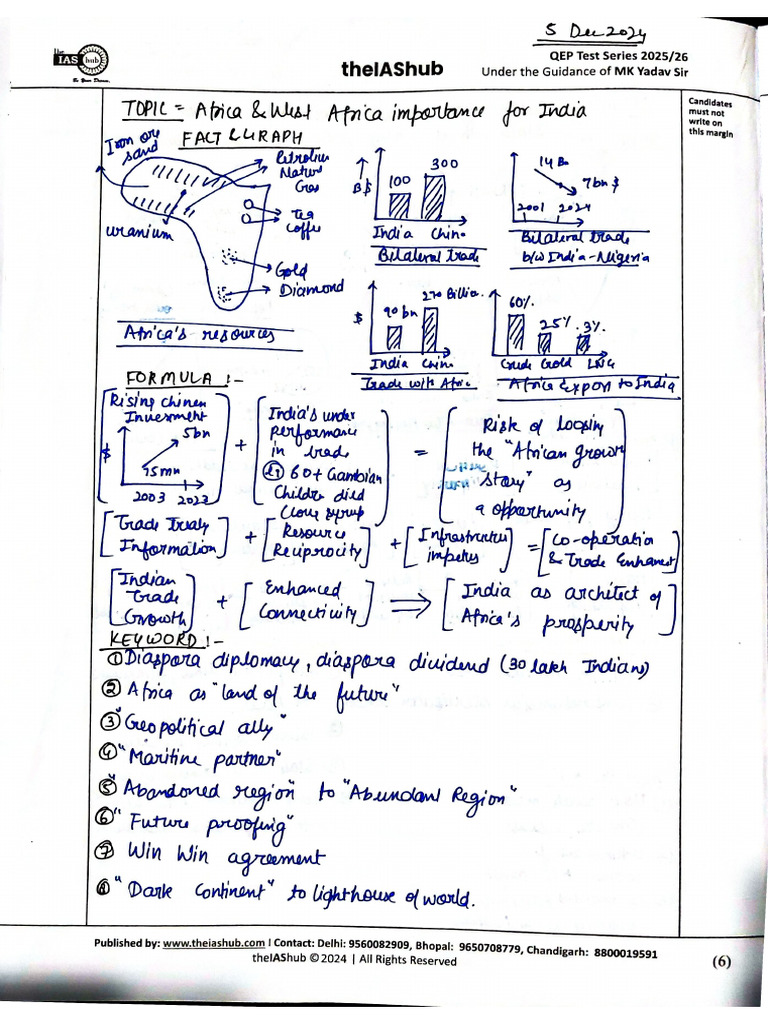 5 Dec 2024
the
IAS hub
Be Your Dream
theIAShub
QEP Test Series 2025/26
Under the Guidance of MK Yadav Sir
Candidates
must not
write on
this margin
TOPIC = Africa & West Africa importance for India
FACT & GRAPH
Iron ore
sand
Petrolium
Natural
Gas
Tea
Coffe
uranium
Gold
Diamond
Africa's resources
B$
100
300
India China
Bilateral trade
14 Bn
7bn $
2001 2024
Bilateral trade
b/w India-Nigeria
$
90 bn
270 Billion.
India China
Trade with Africa
60%
25%
3%
Crude Gold LNG
Africa Export to India
FORMULA :-
[Rising Chinese
Investment
$
5bn
75mn
2003 2023]
+
[India's under
performance
in trade
eg 60+ Gambian
Children died
Cough syrup]
=
[Risk of loosing
the "African growth
story" as
a opportunity]
[Trade Treaty
Information] + [Resource
Reciprocity] + [Infrastructure
impetus] = [Co-operation
& Trade Enhancest]
[Indian
Trade
Growth] + [Enhanced
Connectivity] ⇒ [India as architect of
Africa's prosperity]
KEYWORD :-
① Diaspora diplomacy, diaspora dividend (30 lakh Indians)
② Africa as "land of the future"
③ "Geopolitical ally"
④ "Maritine partner"
⑤ "Abandoned region" to "Abundant Region"
⑥ "Future proofing"
⑦ Win Win agreement
⑧ "Dark Continent" to lighthouse of world.
Published by: www.theiashub.com I Contact: Delhi: 9560082909, Bhopal: 9650708779, Chandigarh: 8800019591
theIAShub © 2024 | All Rights Reserved
(6)